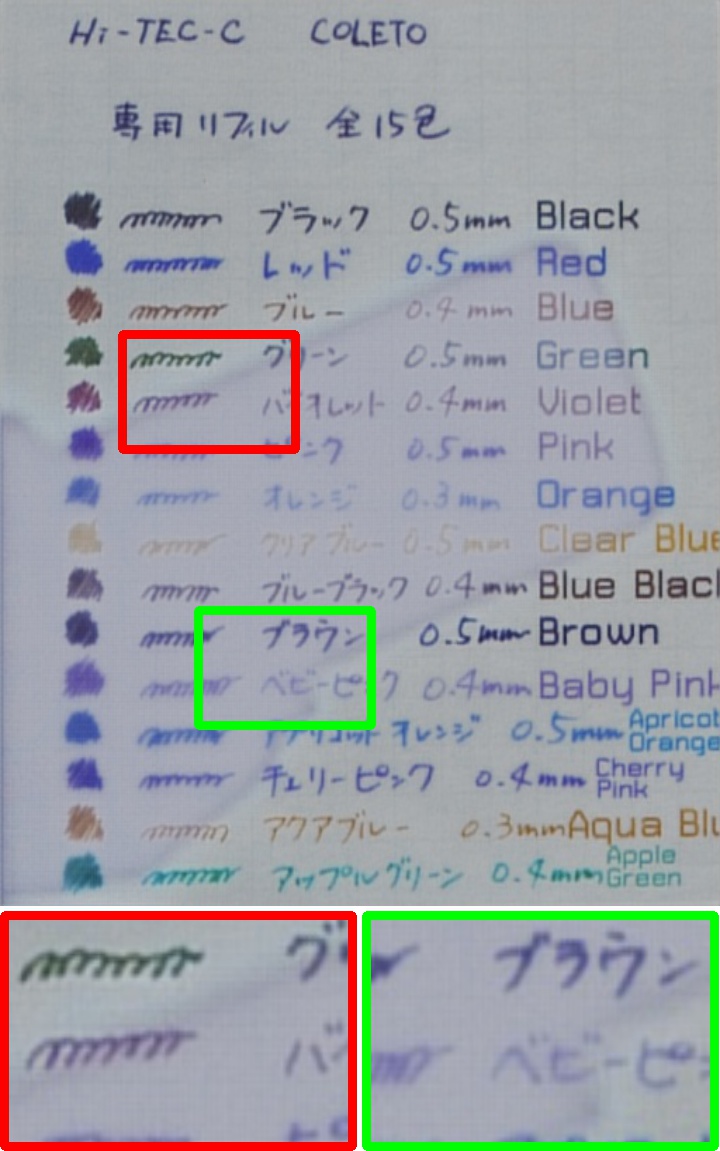 Hi-TEC-C COLETO
専用リフィル 全15色
ブラック 0.5mm Black
レッド 0.5mm Red
ブルー 0.4mm Blue
グリーン 0.5mm Green
バイオレット 0.4mm Violet
ピンク 0.5mm Pink
オレンジ 0.3mm Orange
クリアブルー 0.5mm Clear Blue
ブルーブラック 0.4mm Blue Blac
ブラウン 0.5mm Brown
ベビーピンク 0.4mm Baby Pink
アプリコットオレンジ 0.5mm Apricot Orange
チェリーピンク 0.4mm Cherry Pink
アクアブルー 0.3mm Aqua Blu
アップルグリーン 0.4mm Apple Green
ブラウン
ベビーピ